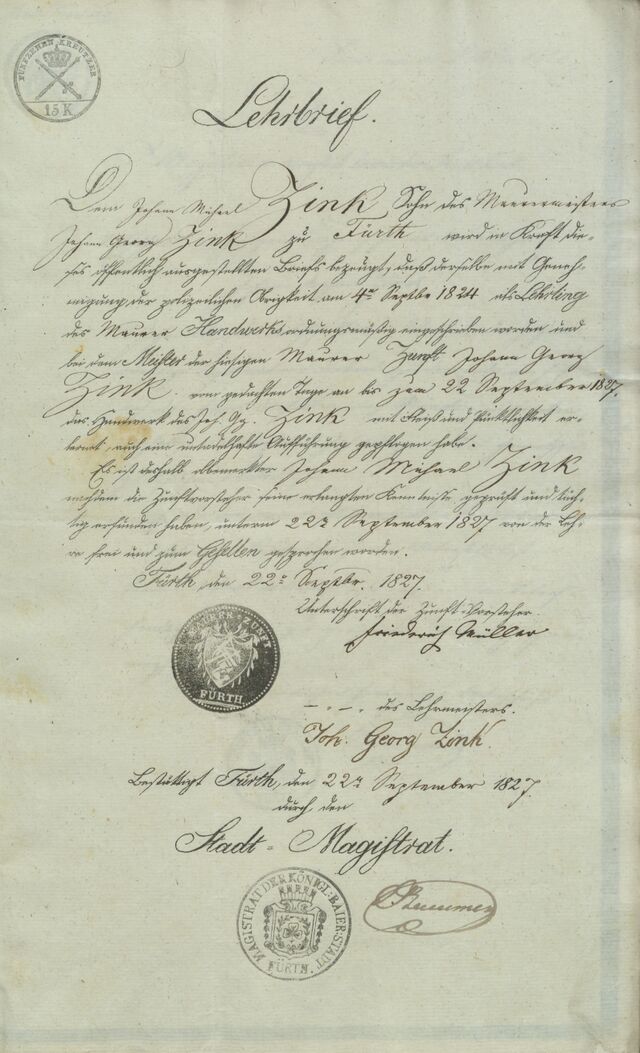 FÜNFZEHEN KREUTZER
15 K
Lehrbrief.
Dem Johann Michael Zink Sohn des Maurermeisters
Johann Georg Zink zu Fürth wird in Kraft die-
ses öffentlich ausgestellten Briefs bezeugt, daß derselbe mit Geneh-
migung der polizeilichen Obrigkeit am 4ten Septbr 1824 als Lehrling
des Maurer Handwerks ordnungsmäßig eingeschrieben worden und
bei dem Meister der hiesigen Maurer Zunft Johann Georg
Zink vom gedachten Tage an bis zum 22 September 1827.
das Handwerk des Joh. Gg. Zink mit Fleiß und Pünktlichkeit er-
lernt, auch eine untadelhafte Aufführung gepflogen habe.
Es ist deshalb Johann Michael Zink
nachdem die Zunftvorsteher seine erlangten Kenntnisse geprüft und tüch-
tig erfunden haben, unterm 22ten September 1827 von der Leh-
re frei und zum Gesellen gesprochen worden.
Fürth, den 22ten Septbr. 1827.
Unterschrift der Zunft-Vorsteher.
Friederich Müller
MAURER ZUNFT
FÜRTH
— „ — „ des Lehrmeisters.
Joh. Georg Zink
Bestättigt Fürth, den 22ten September 1827.
durch den
Stadt-Magistrat.
MAGISTRAT DER KÖNIGL: BAIER: STADT
FÜRTH.